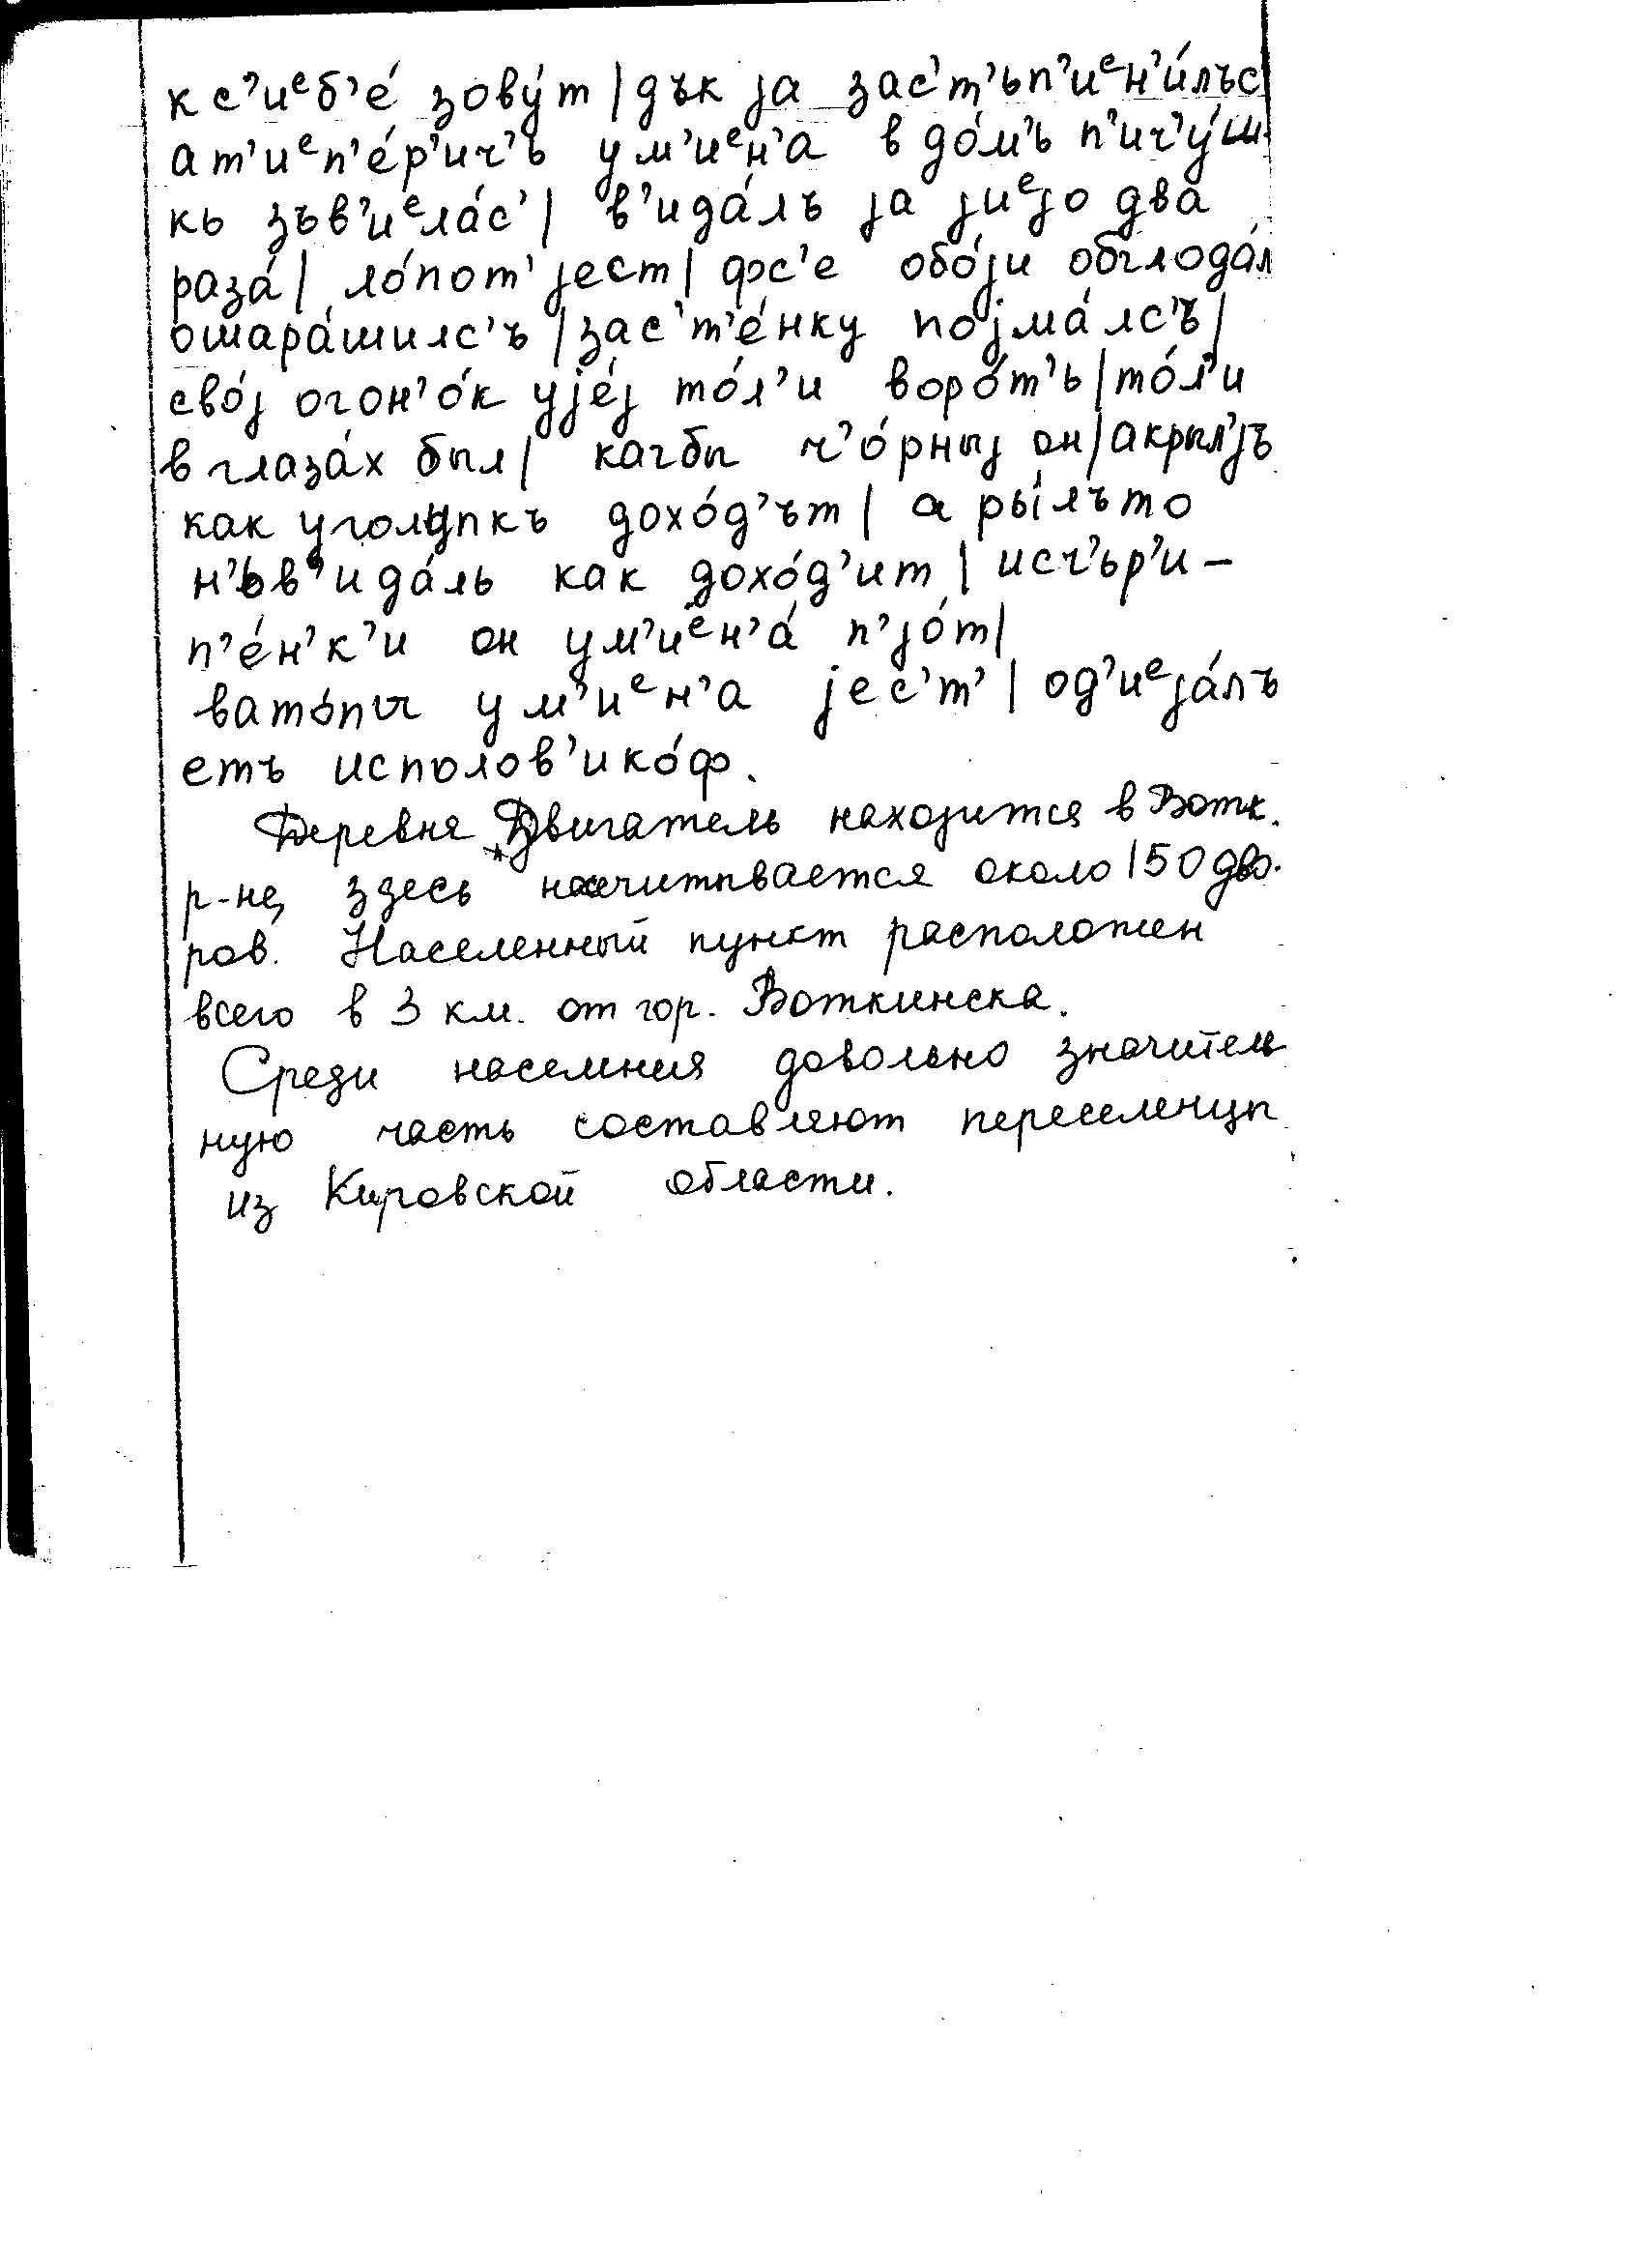 к с’иᵉб’е́ зову́т | дък ја зас’т’ьп’иᵉн’и́лъс’
а т’иᵉп’е́р’ич’ъ у м’иᵉн’а в до́м’ъ п’ич’у́ш-
къ зъв’иᵉла́с’ | в’ида́лъ ја јиᵉјо два
раза́ | ло́пот’ јест | фс’е обо́ји обглода́л
ошара́шилс’ъ | за с’т’е́нку појма́лс’ъ |
сво́ј огон’о́к у је́ј то́л’и воро́т’ъ | то́л’и
в глаза́х был | кагбы ч’о́рныј он | а крыл’јъ
как у голупкъ дохо́д’ът | а ры́лъ то
н’ьв’ида́лъ как дохо́д’ит | ис ч’ър’и-
п’е́н’к’и он у м’иᵉн’а́ п’јо́т |
вато́пы у м’иᵉн’а јес’т’ | од’иᵉја́лъ
етъ исполов’ико́ф.
Деревня „Двигатель находится в Вотк.
р-не, здесь насчитывается около 150 дво-
ров. Населенный пункт расположен
всего в 3 км. от гор. Воткинска.
Среди населения довольно значитель
ную часть составляют переселенцы
из Кировской области.